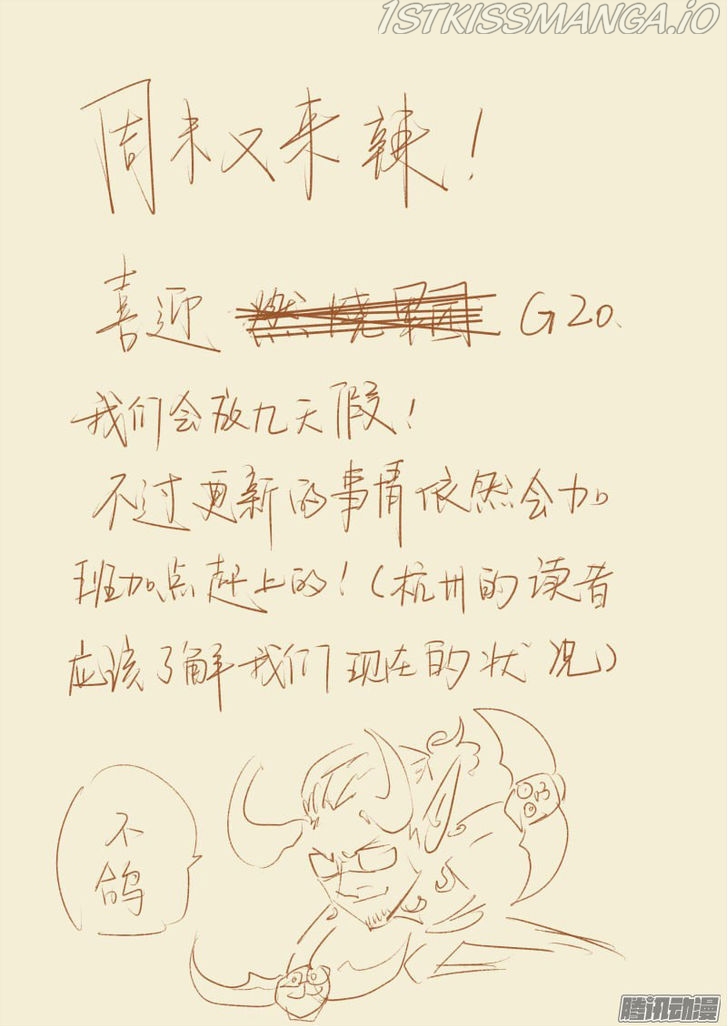 1STKISSMANGA.iO
周末又来辣！
喜迎 燃烧军团 G20、
我们会放九天假！
不过更新的事情依然会加
班加点赶上的！（杭州的读者
应该了解我们现在的状况）
不
鸽
腾讯动漫